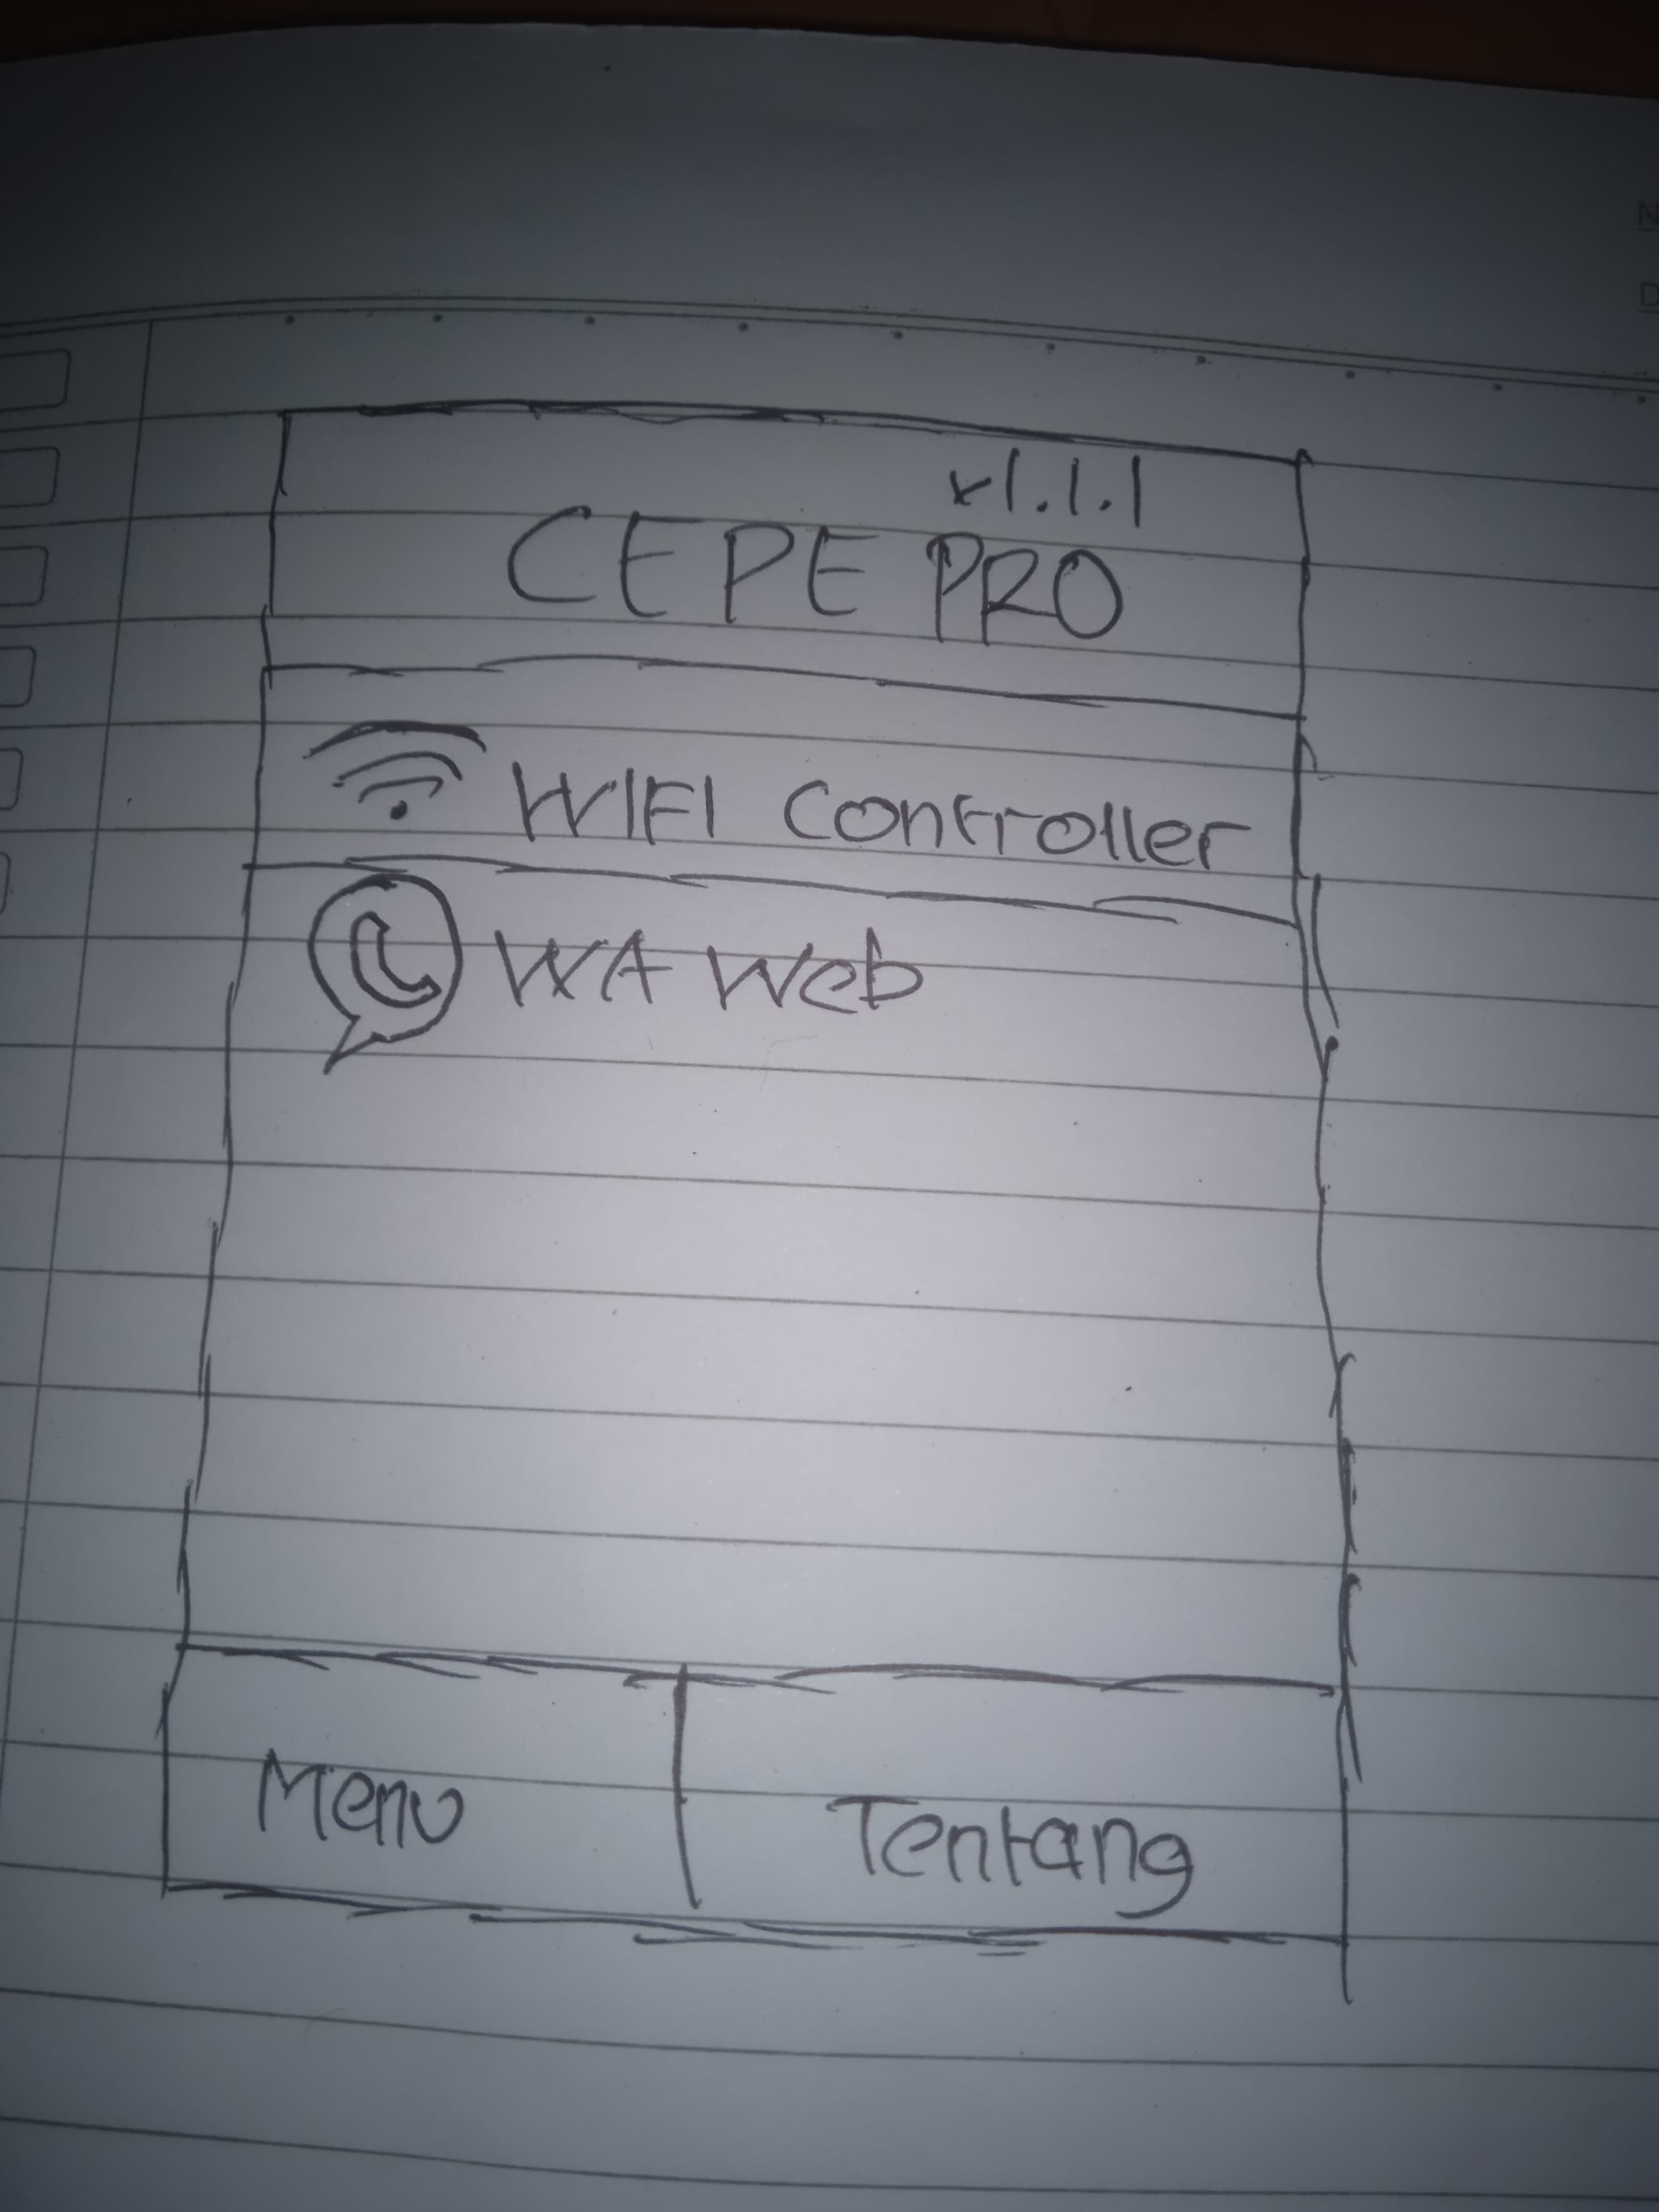 v1.1.1
CEPE PRO
WIFI Controller
WA Web
Menu
Tentang